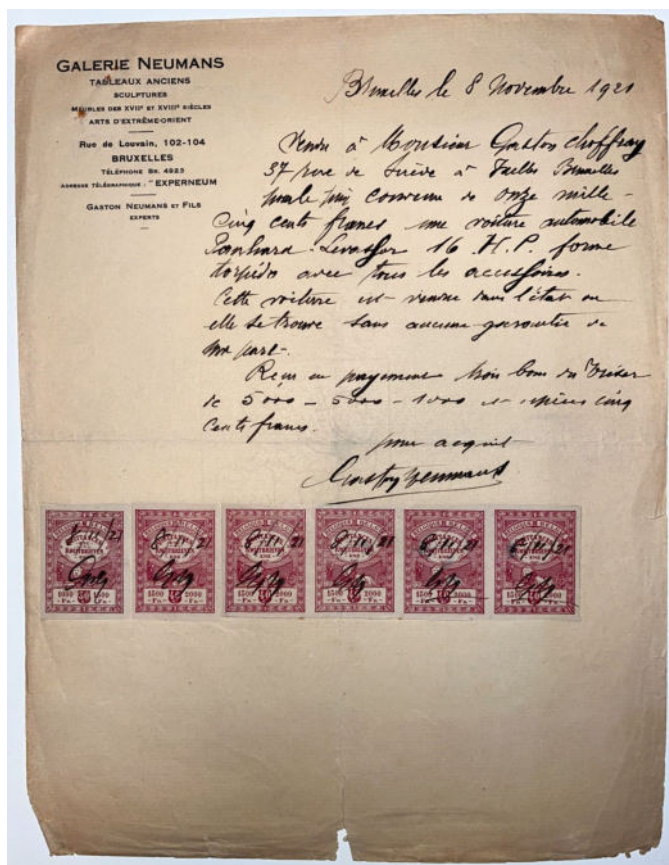 GALERIE NEUMANS
TABLEAUX ANCIENS
SCULPTURES
MEUBLES DES XVIIE ET XVIIIE SIÈCLES
ARTS D'EXTRÊME-ORIENT
Rue de Louvain, 102-104
BRUXELLES
TÉLÉPHONE BR. 4923
ADRESSE TÉLÉGRAPHIQUE: "EXPERNEUM
GASTON NEUMANS ET FILS
EXPERTS
Bruxelles le 8 Novembre 1921
Vendu à Monsieur Gaston Choffray
37 rue de Suède à Ixelles Bruxelles
pour le prix convenu de onze mille
cinq cents francs une voiture automobile
Panhard-Levassor 16 H.P. forme
torpédo avec tous les accessoires.
Cette voiture est vendue dans l'état où
elle se trouve sans aucune garantie de
ma part.
Reçu en payement trois bons du Trésor
de 5000 - 5000 - 1000 et espèces cinq
cents francs.
pour acquit
Gaston Neumans
BELGIQUE BELGIË
8/11/21
1500 2000
Frs Frs